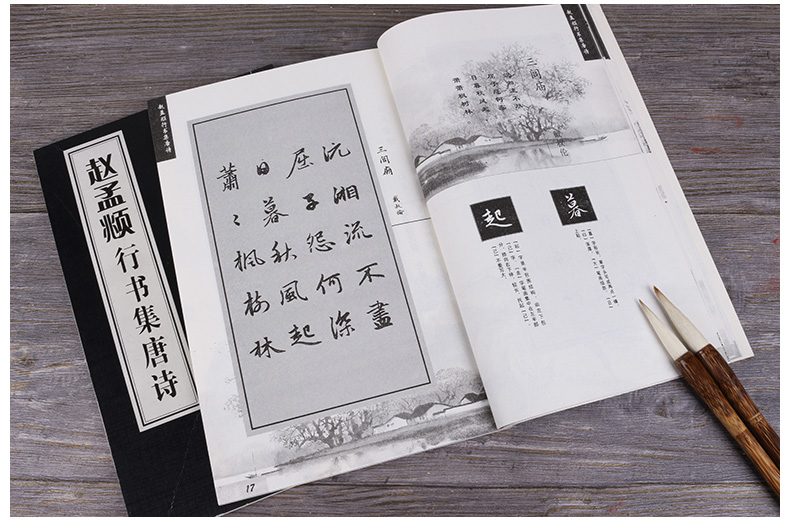 赵孟頫行书集唐诗
赵孟頫行书集唐诗
三闾庙
戴叔伦
沅湘流不盡
屈子怨何深
日暮秋風起
蕭〻楓樹林
17
赵孟頫行书集唐诗
三闾庙
沅湘流不尽
屈子怨何深
日暮秋风起
萧萧枫树林
暮
起